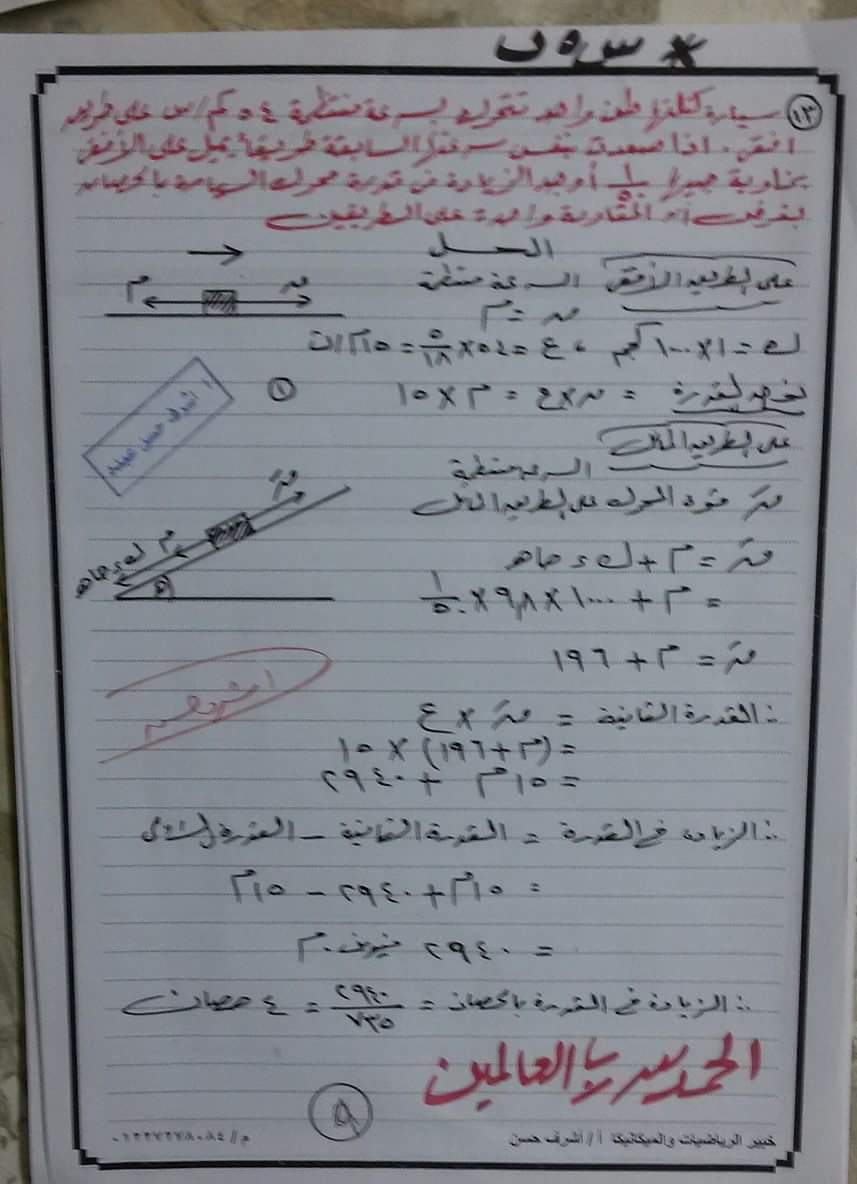 * س ٥ ب
١٣ سيارة كتلتها طن واحد تتحرك بسرعة منتظمة ٥٤ كم/س على طريق
أفقى . اذا صعدت بنفس سرعتها السابقة طريقاً يميل على الأفقى
بزاوية جيبها ١/٥٠ أوجد الزيادة فى قدرة محرك السيارة بالحصان
بفرض أن المقاومة واحدة على الطريقين
الحل
على الطريق الأفقى السرعة منتظمة
م ن
ن = م
ك = ١ × ١٠٠٠ كجم ، ع = ٥٤ × ٥/١٨ = ١٥ م/ث
القدرة = ن × ع = م × ١٥ ①
أ / أشرف حسن
على الطريق المائل
السرعة منتظمة
نَ قوة المحرك على الطريق المائل
نَ م ك ء جا هـ هـ
نَ = م + ك ء جا هـ
= م + ١٠٠٠ × ٩,٨ × ١/٥٠
نَ = م + ١٩٦
∴ القدرة الثانية = نَ × ع
= (م + ١٩٦) × ١٥
= ١٥ م + ٢٩٤٠
∴ الزيادة فى القدرة = القدرة الثانية − القدرة الأولى
= ١٥ م + ٢٩٤٠ − ١٥ م
= ٢٩٤٠ نيوتن . م
∴ الزيادة فى القدرة بالحصان = ٢٩٤٠/٧٣٥ = ٤ حصان
الحمد لله رب العالمين
٩
خبير الرياضيات والميكانيكا أ / أشرف حسن